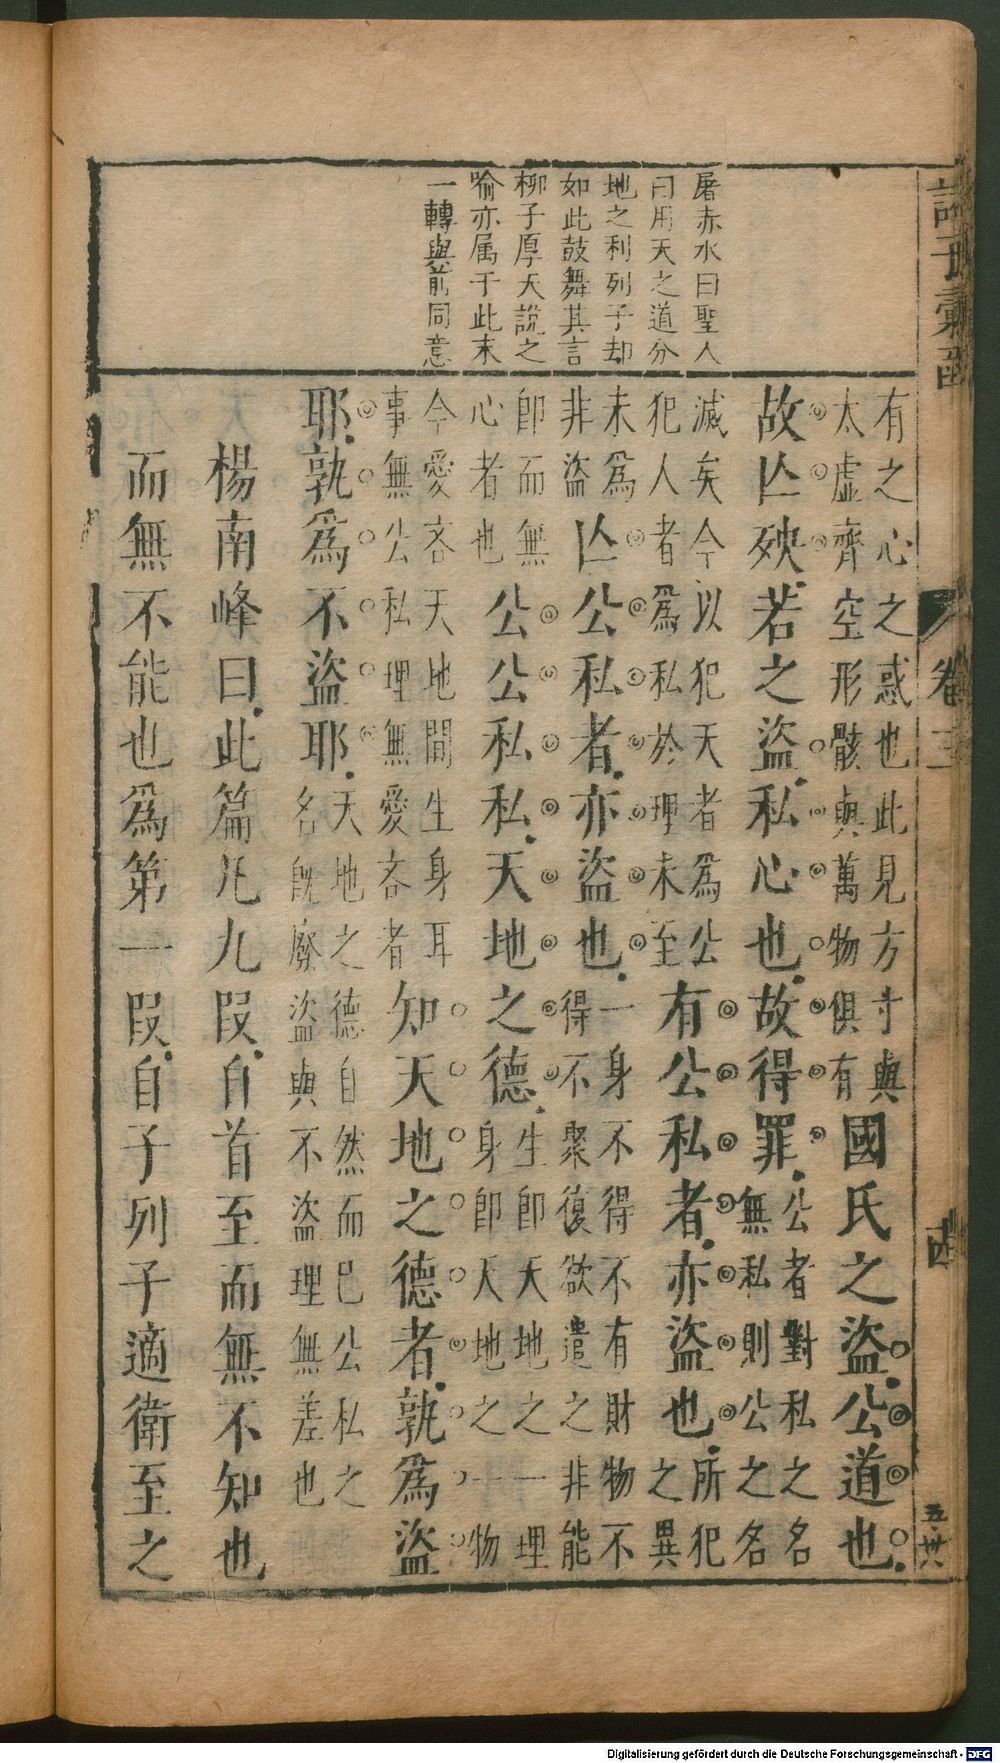 屠赤水曰聖人
曰用天之道分
地之利列子却
如此鼓舞其言
柳子厚天說之
喻亦属于此末
一轉與前同意
卷三
有之心之惑也此見方寸與
太虛齊空形骸與萬物俱有
國氏之盜公道也
故亾殃若之盜私心也故得罪
公者對私之名
無私則公之名
滅矣今以犯天者爲公
犯人者爲私於理未至
有公私者亦盜也
所犯
之異
未爲
非盜
亾公私者亦盜也
一身不得不有財物不
得不聚復欲遣之非能
即而無
心者也
公公私私天地之德
生即天地之一理
身即天地之一物
今愛吝天地間生身耳
事無公私理無愛吝者
知天地之德者孰爲盜
耶孰爲不盜耶
天地之德自然而已公私之
名既廢盜與不盜理無差也
楊南峰曰此篇凡九段自首至而無不知也
而無不能也爲第一段自子列子適衛至之
Digitalisierung gefördert durch die Deutsche Forschungsgemeinschaft - DFG